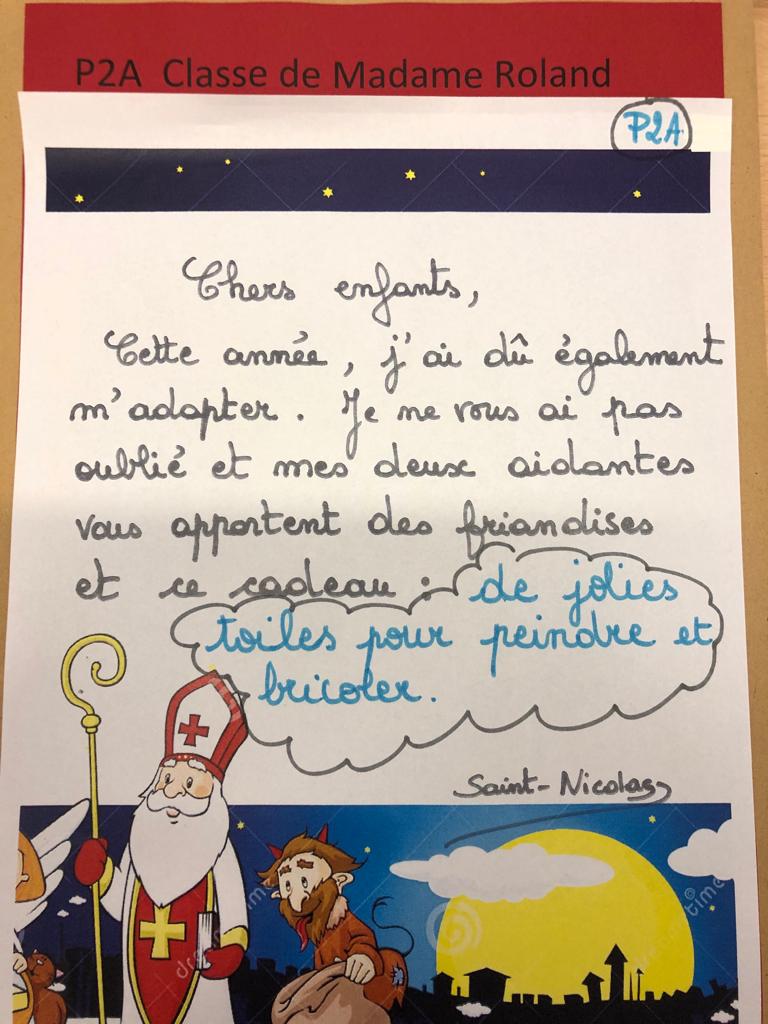 P2A Classe de Madame Roland
P2A
Chers enfants,
Cette année, j'ai dû également
m'adapter. Je ne vous ai pas
oublié et mes deux aidantes
vous apportent des friandises
et ce cadeau : de jolies
toiles pour peindre et
bricoler.
Saint-Nicolas